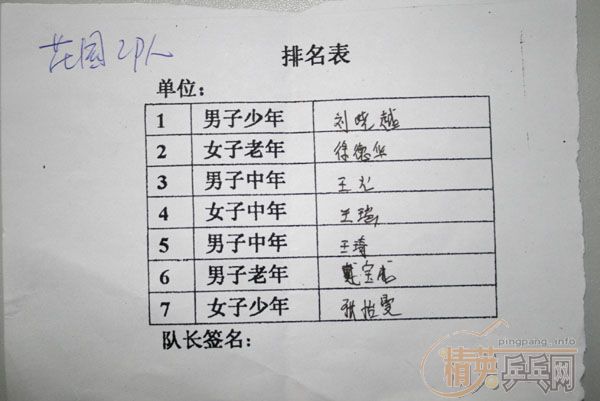 花园
排名表
单位：
1 男子少年 刘晓越
2 女子老年 徐德华
3 男子中年 王尤
4 女子中年 王瑞
5 男子中年 王琦
6 男子老年 戴宝
7 女子少年 怡雯
队长签名：
pingpang.info
精英乒乓网